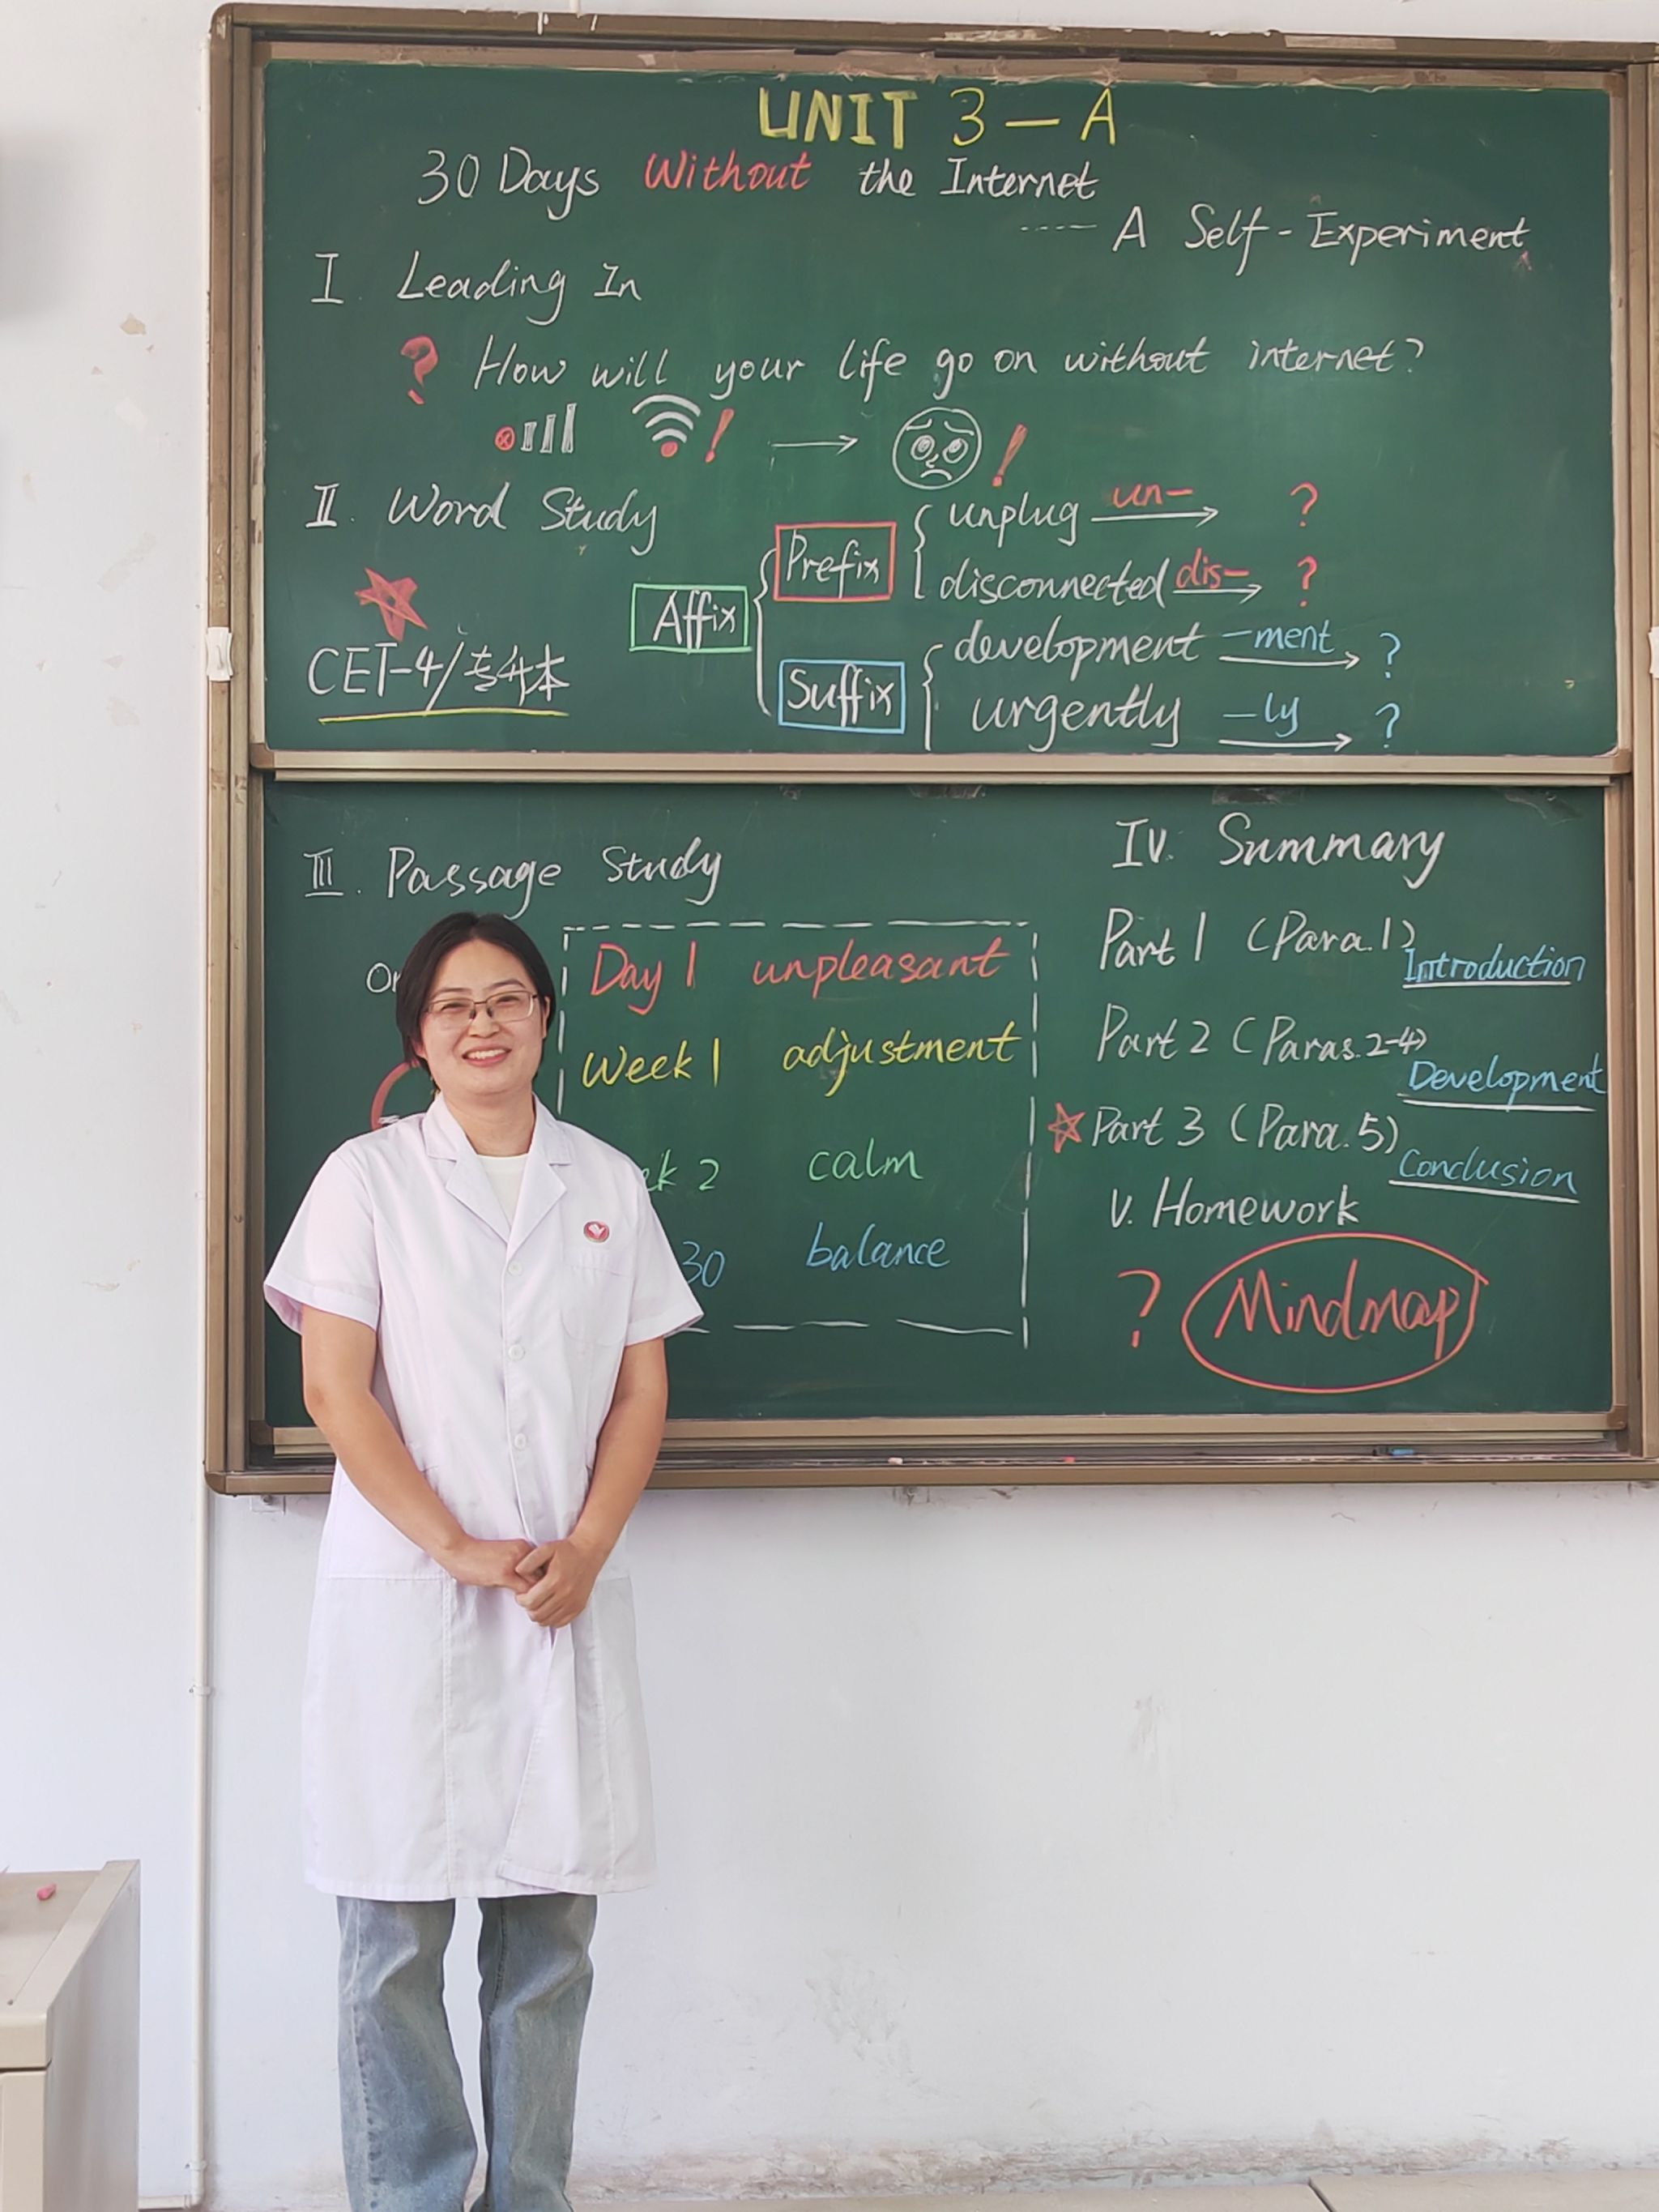 UNIT 3-A
30 Days Without the Internet
---- A Self-Experiment
I Leading In
? How will your life go on without internet?
! → !
II. Word Study
Affix
Prefix
unplug un- ?
disconnected dis- ?
Suffix
development -ment ?
urgently -ly ?
CET-4/专升本
III. Passage Study
Day 1 unpleasant
Week 1 adjustment
2 calm
30 balance
IV. Summary
Part 1 (Para.1)
Introduction
Part 2 (Paras.2-4)
Development
Part 3 (Para.5)
Conclusion
V. Homework
? Mindmap